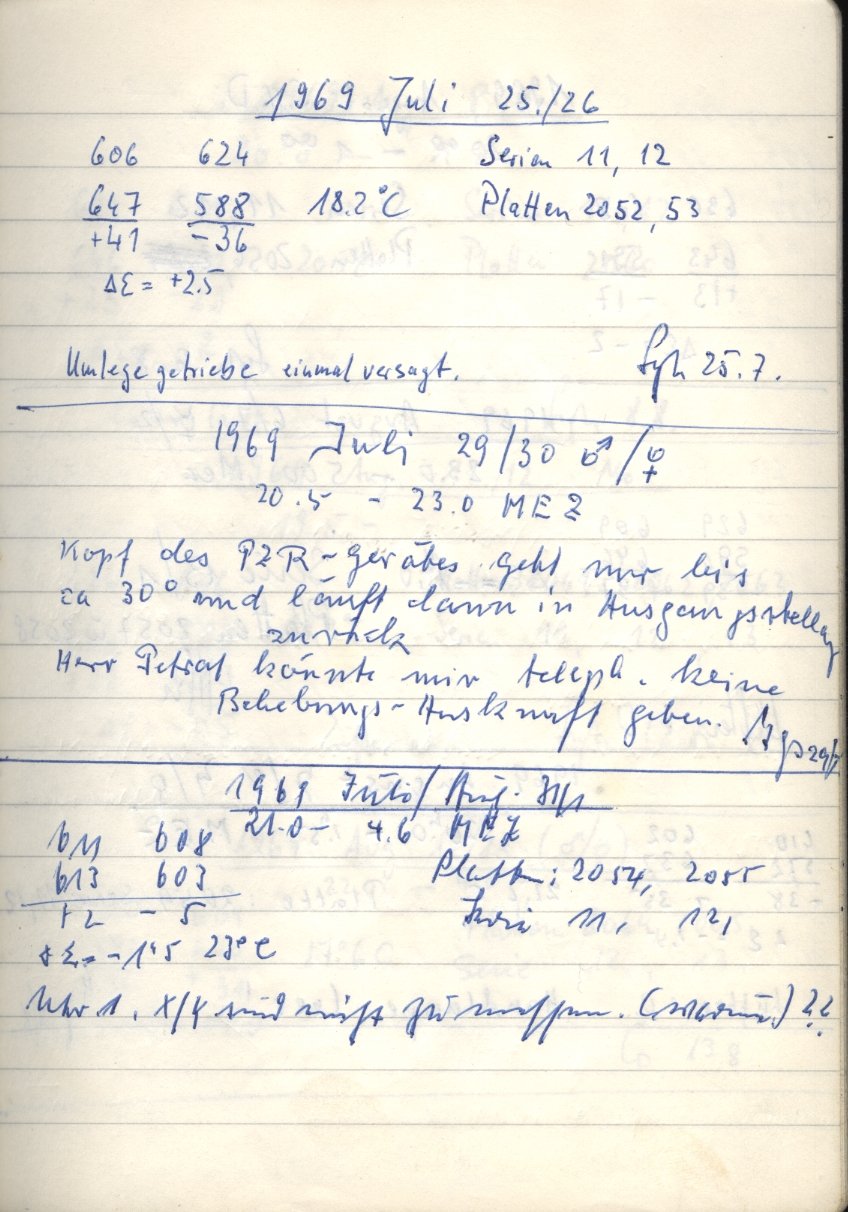 1969 Juli 25./26
606 624 Serien 11, 12
647 588 18.2°C Platten 2052, 53
+41 -36
ΔΣ = +2.5
Umlegegetriebe einmal versagt. 25.7.
1969 Juli 29/30 ♂/♀
20.5 - 23.0 MEZ
Kopf des PZR-Gerätes geht nur bis
ca 30° und läuft dann in Ausgangsstellung
zurück
Herr Petrat könnte mir teleph. keine
Behebungs-Auskunft geben.
1969 Juli/Aug. 31/1
21.0 - 4.6 MEZ
611 608
613 603 Platten: 2054, 2055
+2 - 5 Serie 11, 12,
ΔΣ = -1.5 23°C
Uhr 1, X/Y sind nicht zu messen. (warum?) ??